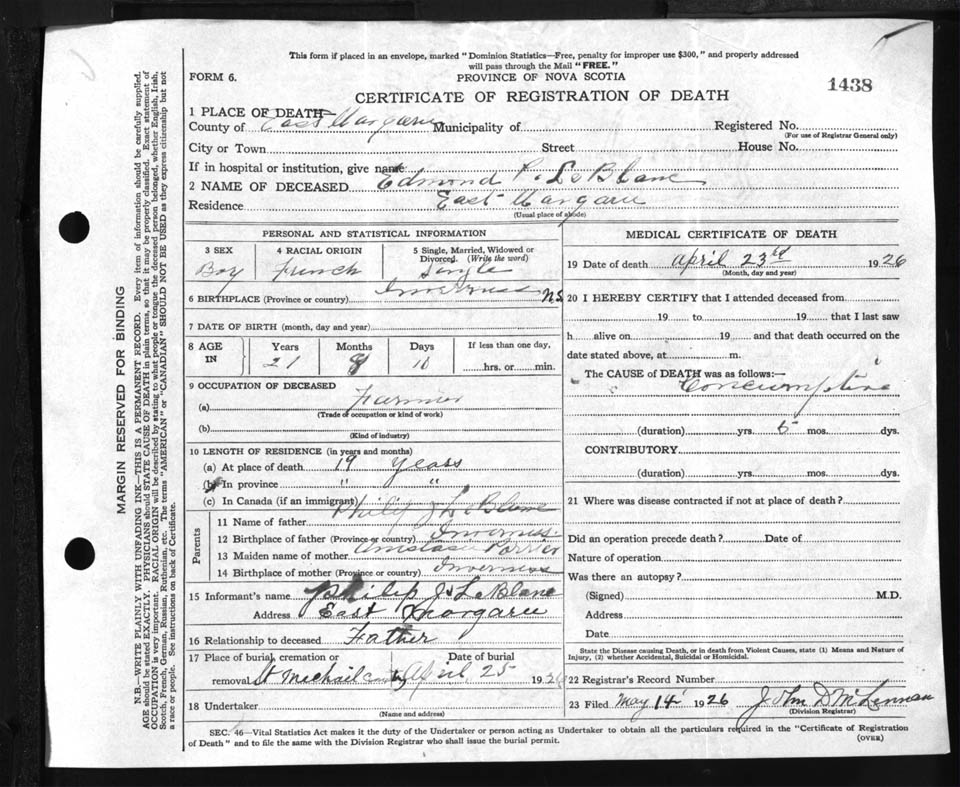 This form if placed in an envelope, marked "Dominion Statistics—Free, penalty for improper use $300," and properly addressed
will pass through the Mail "FREE."
FORM 6.
PROVINCE OF NOVA SCOTIA
1438
CERTIFICATE OF REGISTRATION OF DEATH
1 PLACE OF DEATH—
County of East Margaree Municipality of Registered No.
(For use of Registrar General only)
City or Town Street House No.
If in hospital or institution, give name
2 NAME OF DECEASED Edmond P. LeBlanc
Residence East Margaree
(Usual place of abode)
PERSONAL AND STATISTICAL INFORMATION
3 SEX 4 RACIAL ORIGIN 5 Single, Married, Widowed or
Divorced. (Write the word)
Boy French Single
6 BIRTHPLACE (Province or country) Inverness N.S.
7 DATE OF BIRTH (month, day and year)
8 AGE IN Years Months Days If less than one day,
21 10 hrs. or min.
9 OCCUPATION OF DECEASED
(a) Farmer
(Trade or occupation or kind of work)
(b)
(Kind of industry)
10 LENGTH OF RESIDENCE (in years and months)
(a) At place of death 19 years
(b) In province " "
(c) In Canada (if an immigrant)
Parents
11 Name of father Philip J LeBlanc
12 Birthplace of father (Province or country) Inverness
13 Maiden name of mother
14 Birthplace of mother (Province or country) Inverness
15 Informant's name Philip J. LeBlanc
Address East Margaree
16 Relationship to deceased Father
17 Place of burial, cremation or Date of burial
removal St Michael April 25 1926
18 Undertaker
(Name and address)
MEDICAL CERTIFICATE OF DEATH
19 Date of death April 23rd 1926
(Month, day and year)
20 I HEREBY CERTIFY that I attended deceased from
19 to 19 that I last saw
h alive on 19 and that death occurred on the
date stated above, at m.
The CAUSE of DEATH was as follows:—
Concumptive
(duration) yrs. 6 mos. dys.
CONTRIBUTORY
(duration) yrs. mos. dys.
21 Where was disease contracted if not at place of death?
Did an operation precede death? Date of
Nature of operation
Was there an autopsy?
(Signed) M.D.
Address
Date
State the Disease causing Death, or in death from Violent Causes, state (1) Means and Nature of
Injury, (2) whether Accidental, Suicidal or Homicidal.
22 Registrar's Record Number
23 Filed May 14 1926 John D McLennan
(Division Registrar)
SEC. 46—Vital Statistics Act makes it the duty of the Undertaker or person acting as Undertaker to obtain all the particulars required in the "Certificate of Registration
of Death" and to file the same with the Division Registrar who shall issue the burial permit.
(OVER)
MARGIN RESERVED FOR BINDING
N.B.—WRITE PLAINLY WITH UNFADING INK—THIS IS A PERMANENT RECORD. Every item of information should be carefully supplied.
AGE should be stated EXACTLY. PHYSICIANS should STATE CAUSE OF DEATH in plain terms, so that it may be properly classified. Exact statement of
OCCUPATION is very important. RACIAL ORIGIN will be described by stating to what people or tongue the deceased person belonged, whether English, Irish,
Scotch, French, German, Russian, Ruthenian, etc. The terms "AMERICAN" or "CANADIAN" SHOULD NOT BE USED as they express citizenship but not
a race or people. See instructions on back of Certificate.